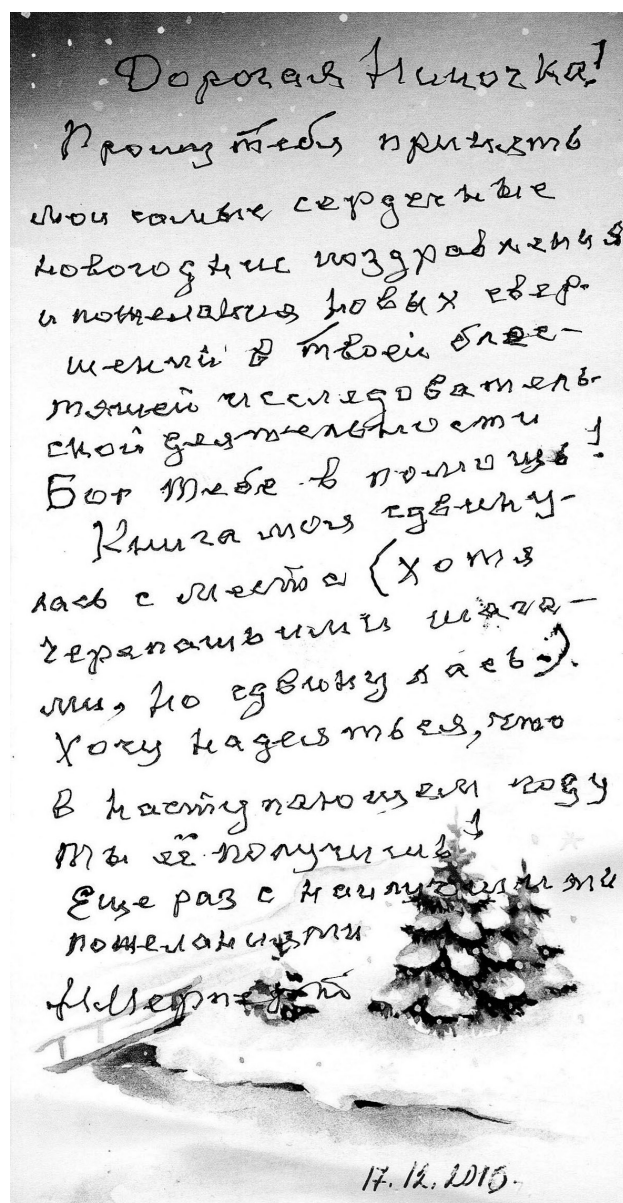 Дорогая Ниночка!
Прошу тебя принять
мои самые сердечные
новогодние поздравления
и пожелания новых свер-
шений в твоей блес-
тящей исследователь-
ской деятельности
Бог тебе в помощь!
Книга моя сдвину-
лась с места (хотя
черепашьими шага-
ми, но сдвинулась).
Хочу надеяться, что
в наступающем году
ты её получишь!
Еще раз с наилучшими
пожеланиями
17.12.2015.